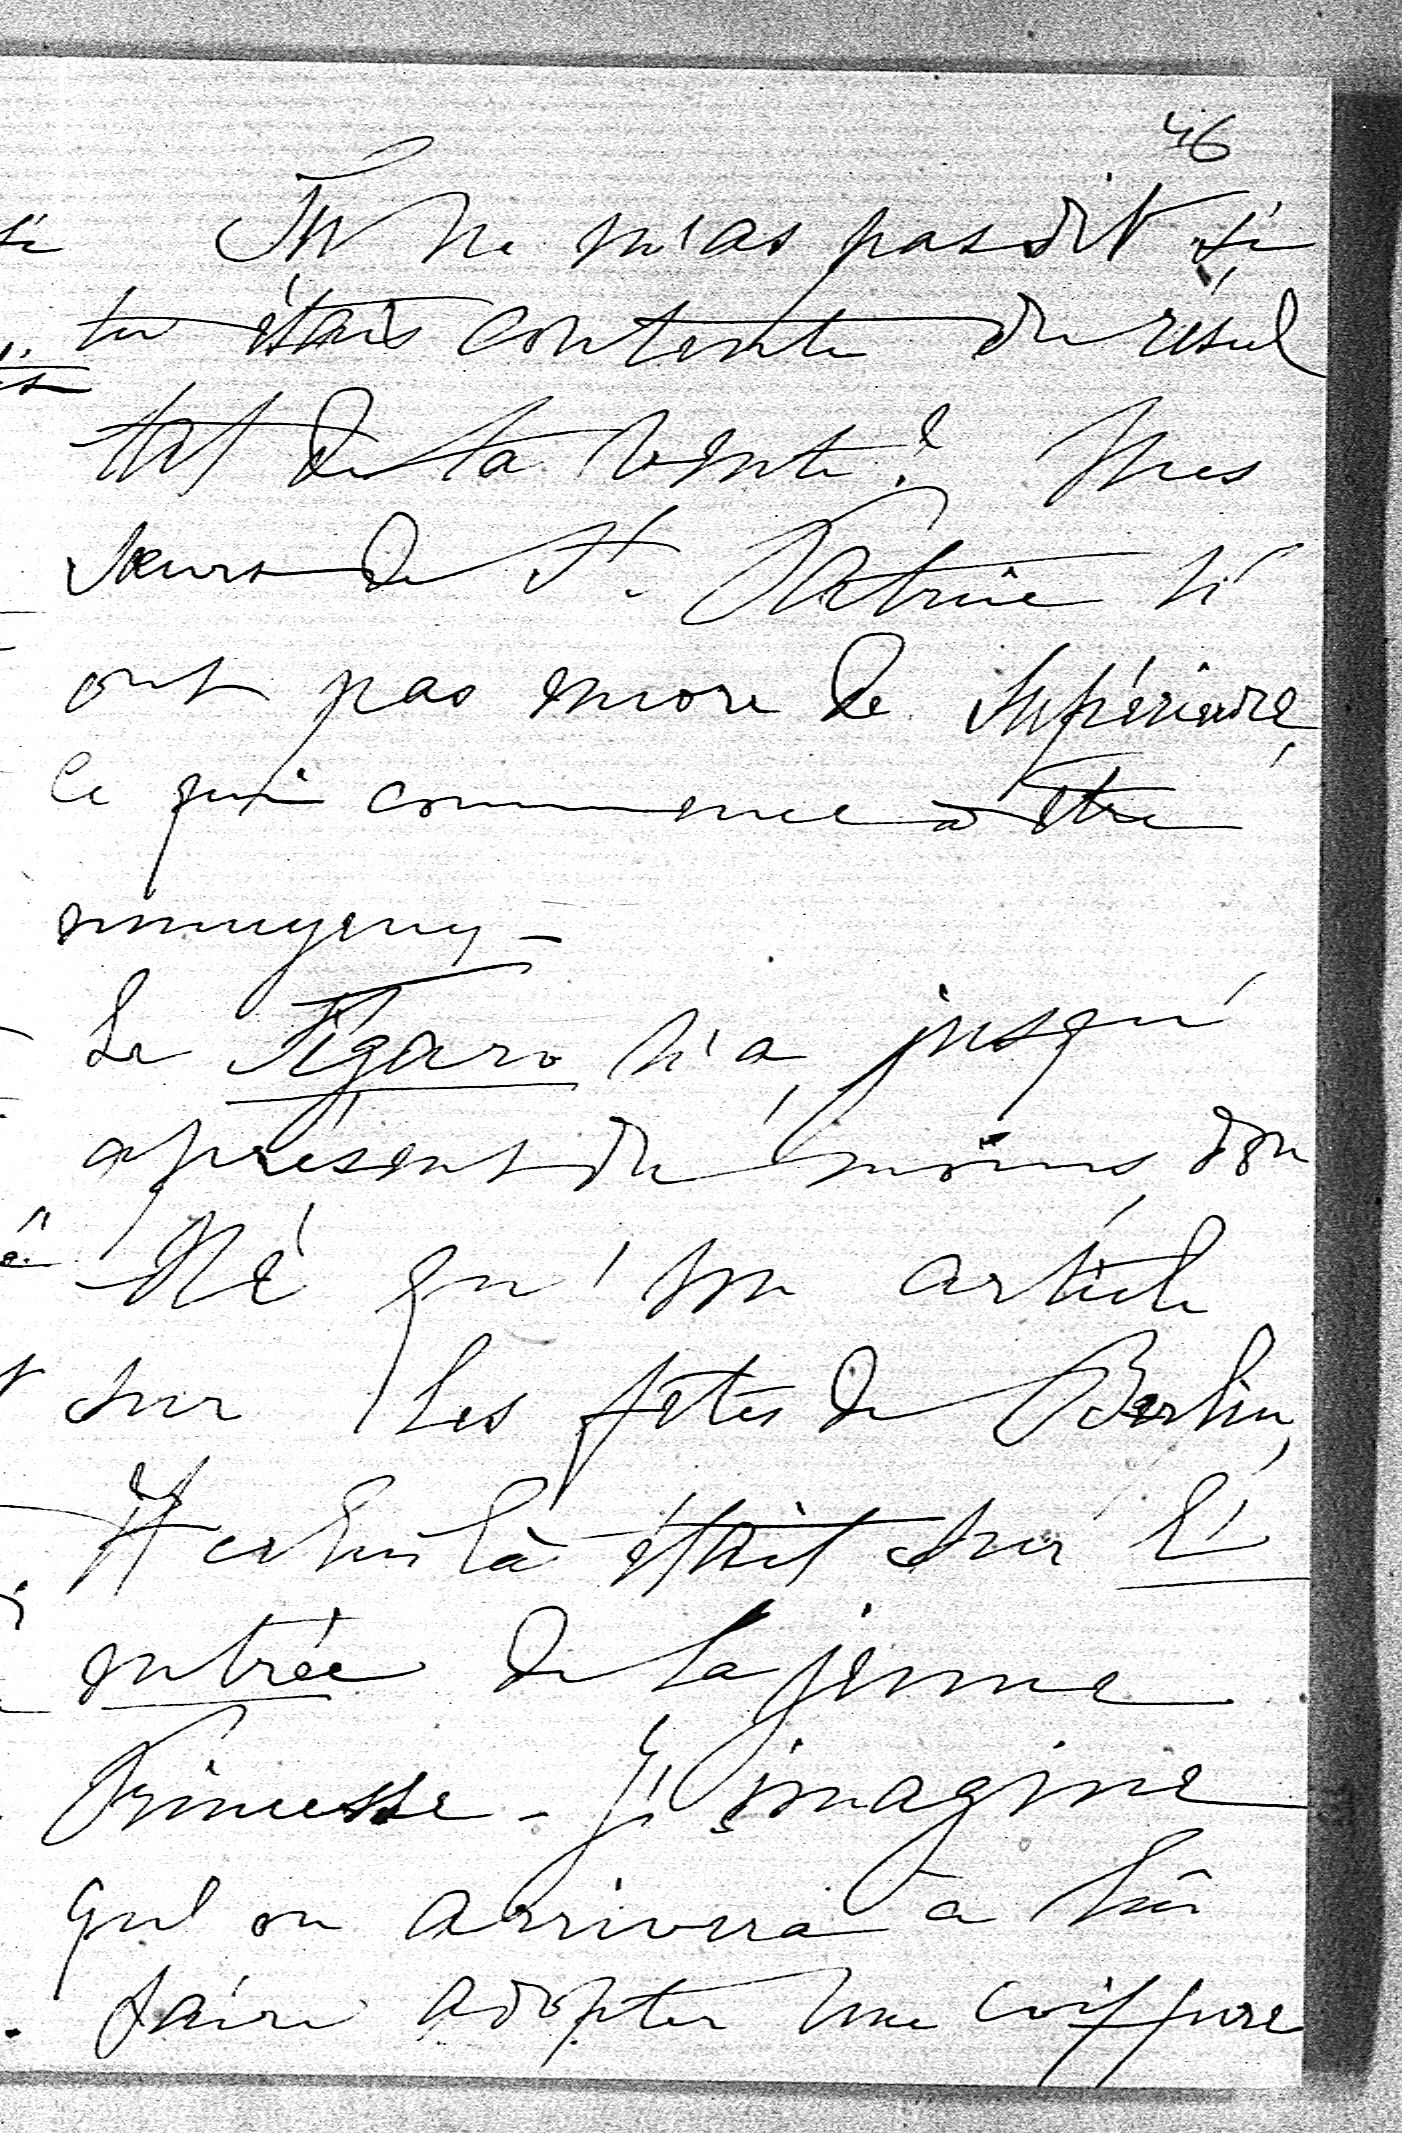 46
Tu ne m'as pas dit si
tu étais contente du résul
tat de la vente? Mes
soeurs de St. Patrice n'
ont pas encore de Supérieure,
ce qui commence à être
ennuyeux –
Le Figaro n'a, jusqu'
à présent du moins, don
né qu'un article
sur les fêtes de Berlin,
et celui là était sur l'
entrée de la jeune
Princesse – J'imagine
qu'on arrivera à lui
faire adopter une coiffure